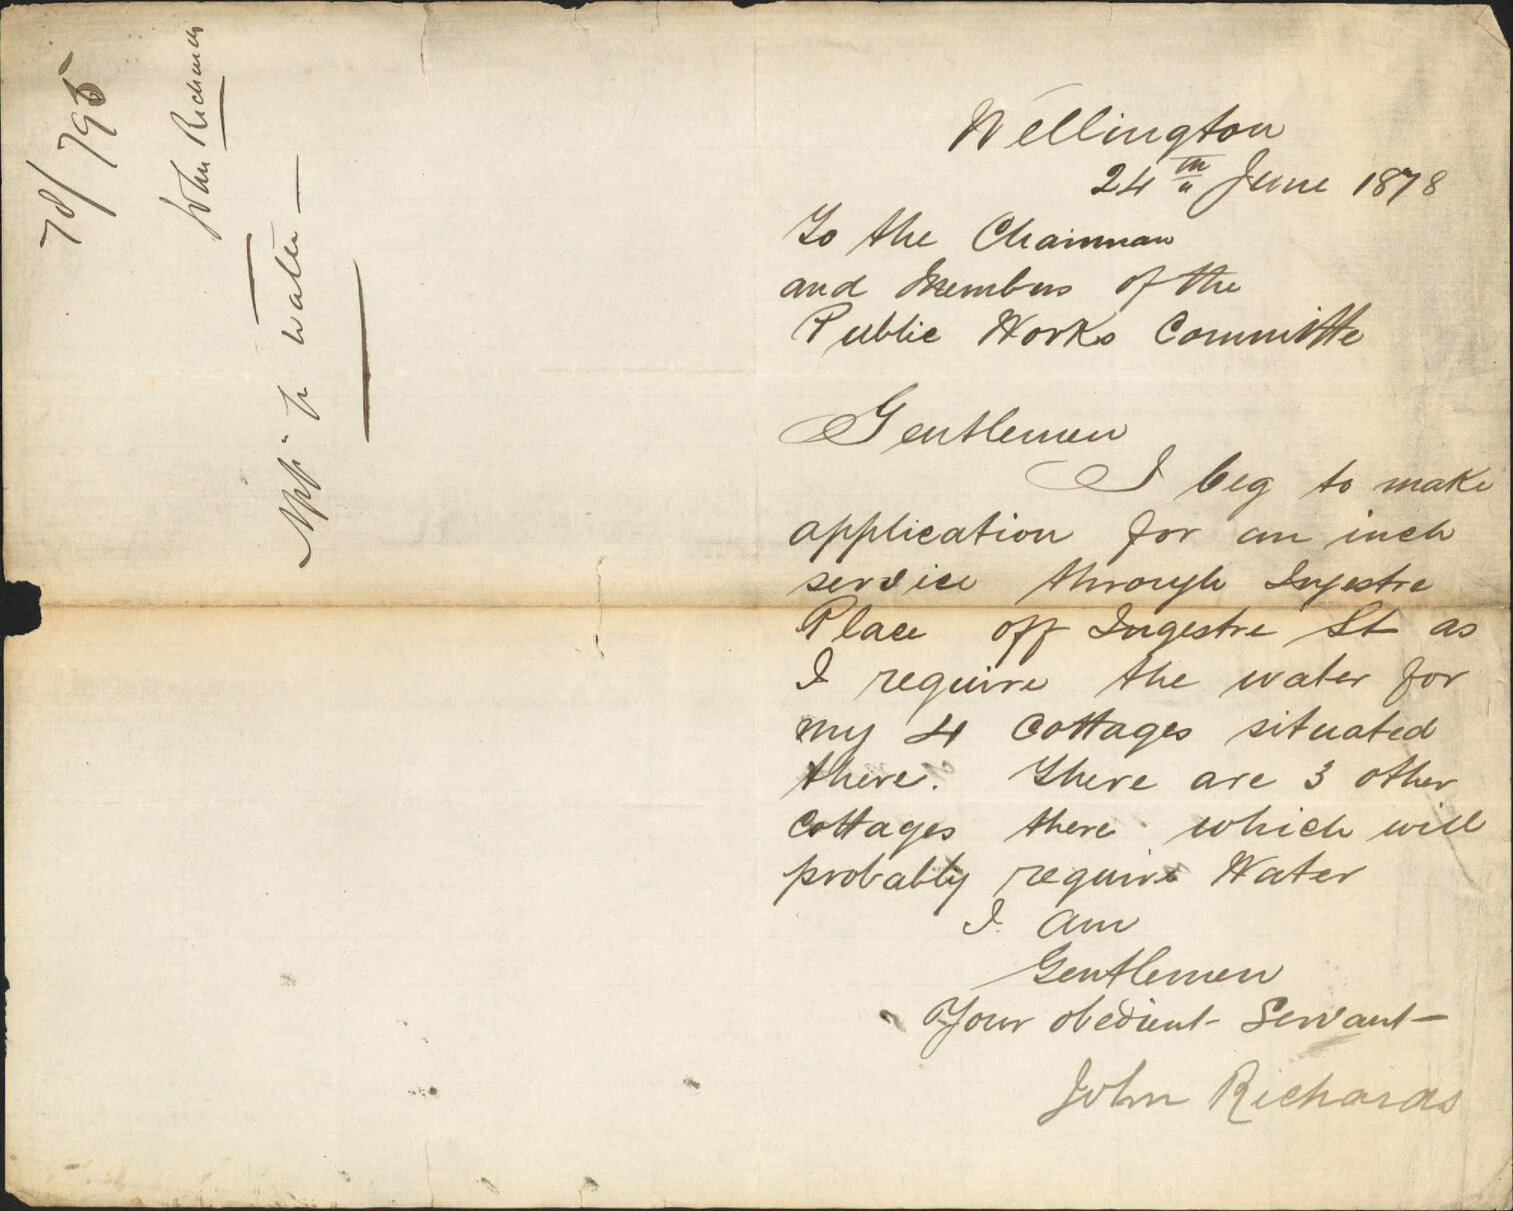 78/795
John Richards
Appn for water
Wellington
24th June 1878
To the Chairman
and Members of the
Public Works Committe
Gentlemen
I beg to make
application for an inch
service through Ingestre
Place off Ingestre St as
I require the water for
my 4 Cottages situated
there. There are 3 other
Cottages there which will
probably require Water
I am
Gentlemen
Your obedient Servant
John Richards